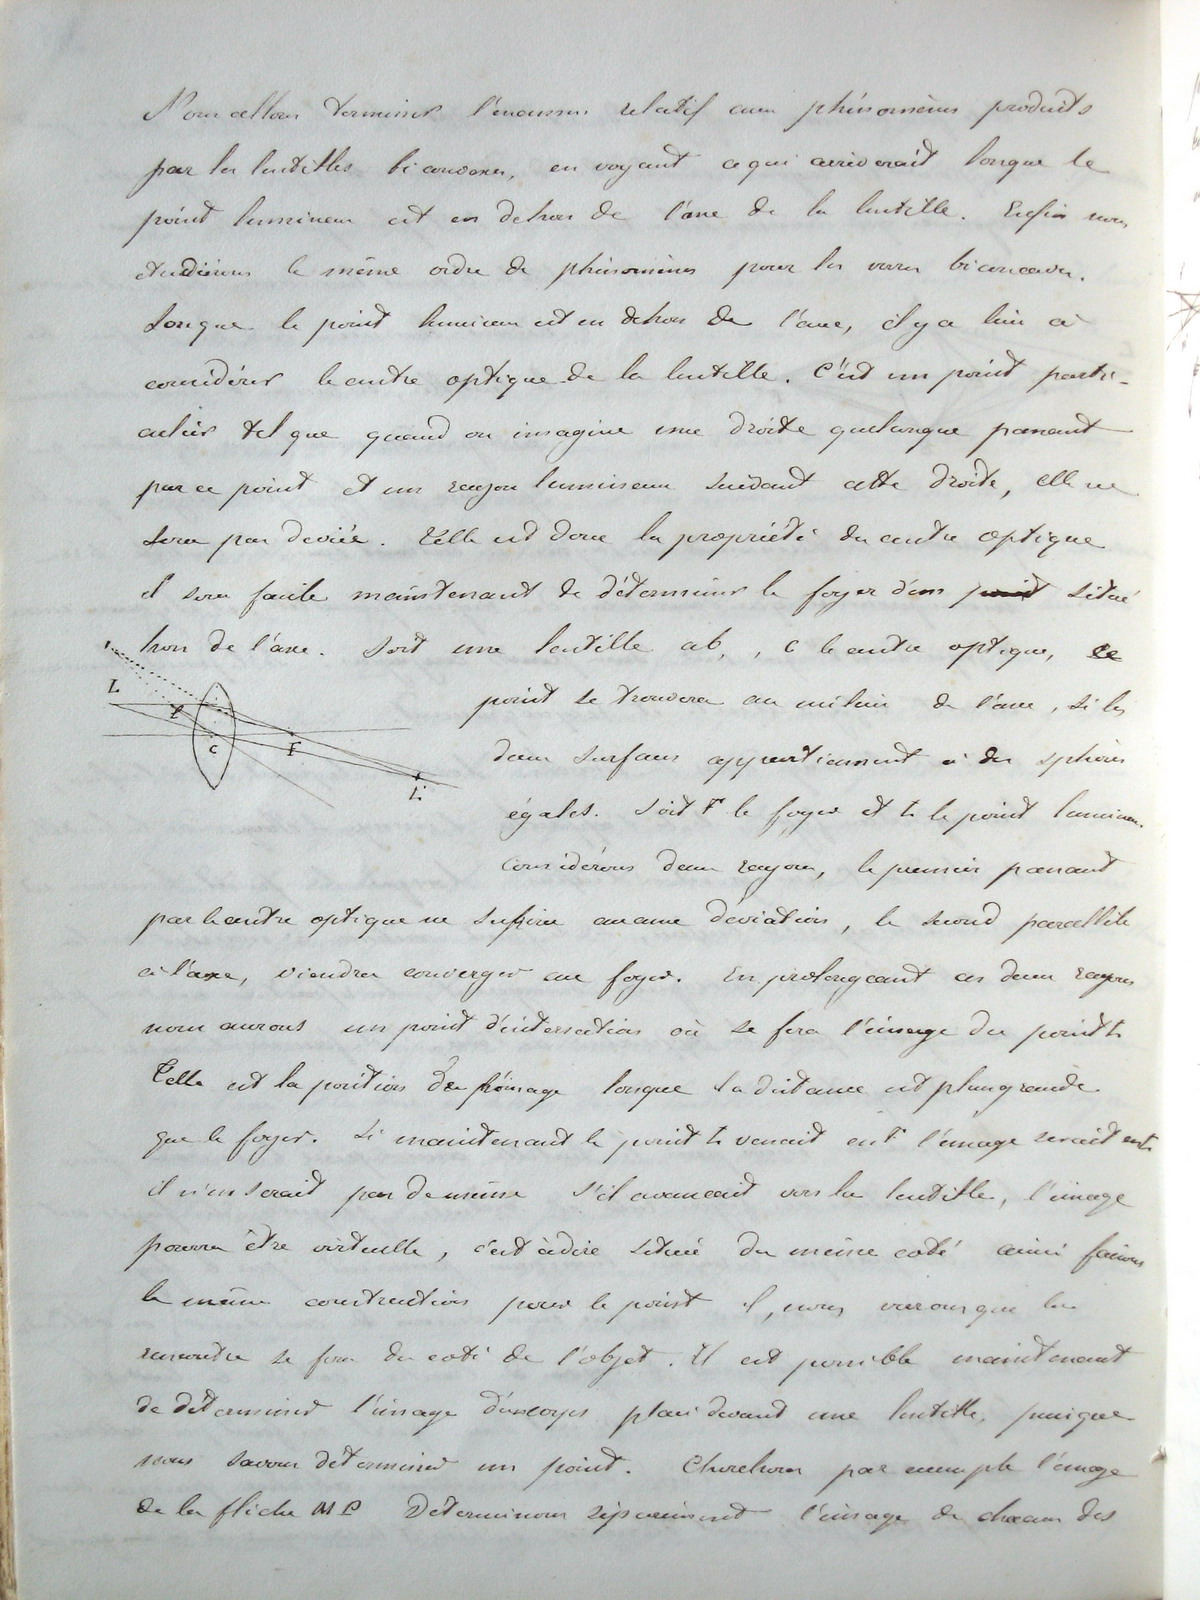 Nous allons terminer l'énoncer relatif aux phénomènes produits
par les lentilles biconvexes, en voyant ce qui arriverait lorsque le
point lumineux est en dehors de l'axe de la lentille. Enfin nous
étudierons le même ordre de phénomènes pour les verres biconcaves.
Lorsque le point lumineux est en dehors de l'axe, il y a lieu à
considérer le centre optique de la lentille. C'est un point parti-
culier tel que quand on imagine une droite quelconque passant
par ce point et un rayon lumineux suivant cette droite, elle ne
sera pas deviée. Telle est donc la propriété du centre optique
il sera facile maintenant de déterminer le foyer d'un point situé
hors de l'axe. Soit une lentille ab, , C le centre optique, ce
L
l
C
F
L'
point se trouvera au milieu de l'axe, si les
deux surfaces appartiennent à des sphères
égales. Soit F le foyer et L le point lumineux.
Considérons deux rayons, le premier passant
par le centre optique ne subira aucune déviation, le second parallèle
à l'axe, viendra converger au foyer. En prolongeant ces deux rayons
nous aurons un point d'intersection où se fera l'image du point L
Telle est la position de l'image lorsque la distance est plus grande
que le foyer. Si maintenant le point L venait en F l'image serait
il n'en serait pas de même s'il avançait vers la lentille, l'image
pourra être virtuelle, c'est à dire située du même coté ainsi faisons
la même construction pour le point l, nous verrons que la
rencontre se fera du coté de l'objet. Il est possible maintenant
de déterminer l'image d'un corps placé devant une lentille, puisque
nous savons déterminer un point. Cherchons par exemple l'image
de la flèche MP Déterminons séparément l'image de chacun des